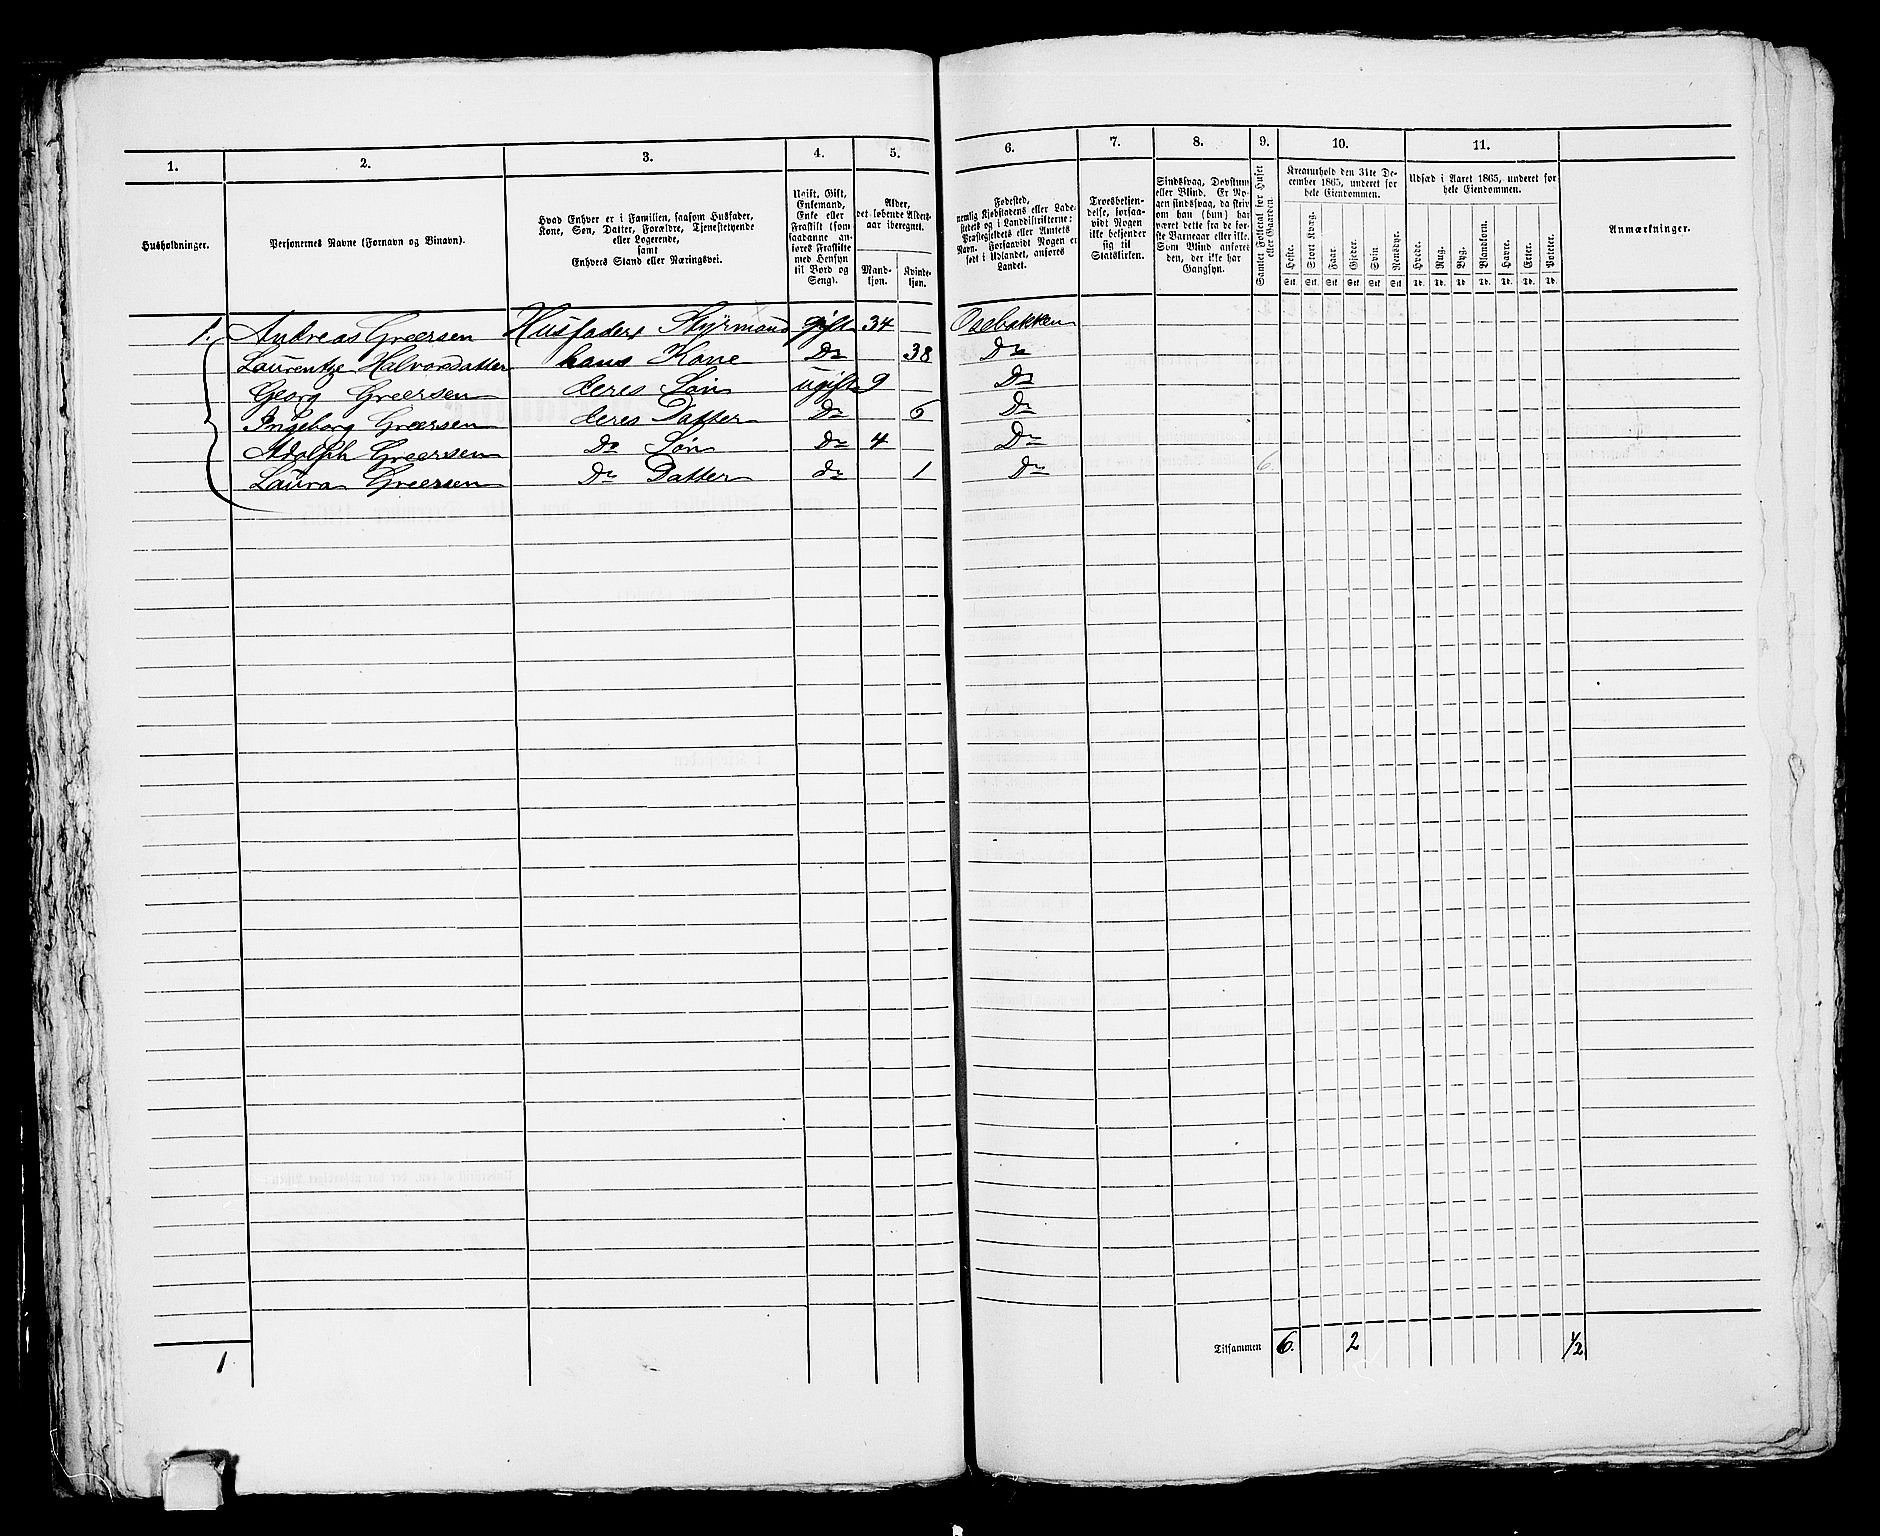 1. 2. 3. 4. 5. 6. 7. 8. 9. 10. 11.
Husholdninger.
Personernes Navne (Fornavn og Binavn).
Hvad Enhver er i Familien, saasom Husfader,
Kone, Søn, Datter, Forældre, Tjenestetyende
eller Logerende,
samt
Enhvers Stand eller Næringsvei.
Ugift, Gift,
Enkemand,
Enke eller
Fraskilt (som
saadanne an-
føres Fraskilte
med Hensyn
til Bord og
Seng).
Alder,
det løbende Alders-
aar iberegnet.
Mand-
kjøn.
Kvinde-
kjøn.
Fødested,
nemlig Kjøbstadens eller Lade-
stedets og i Landdistrikterne:
Præstegjeldets eller Amtets
Navn. Forsaavidt Nogen er
født i Udlandet, anføres
Landet.
Troesbekjen-
delse, forsaa-
vidt Nogen
ikke bekjender
sig til
Statskirken.
Sindssvag, Døvstum
eller Blind. Er No-
gen sindssvag, da skriv
om han (hun) har
været dette fra de før-
ste Barneaar eller ikke.
Som Blind anføres
den, der ikke har
Gangsyn.
Samlet Folketal for Huset
eller Gaarden.
Kreaturhold den 31te De-
cember 1865, underet for
hele Eiendommen.
Heste. Stort Kvæg. Faar. Gjeder. Svin. Rensdyr.
Stk. Stk. Stk. Stk. Stk. Stk.
Udsæd i Aaret 1865, underet for
hele Eiendommen.
Hvede. Rug. Byg. Blandkorn. Havre. Erter. Poteter.
Td. Td. Td. Td. Td. Td. Td.
Anmærkninger.
1. Andreas Greersen Husfader, Styrmand gift 34 Osebakken
Laurentze Halvorsdatter hans Kone Do 38 Do
Georg Greersen deres Søn ugift 9 Do
Ingeborg Greersen deres Datter Do 6 Do
Adolph Greersen Do Søn Do 4 Do
Laura Greersen Do Datter do 1 Do 6
1 Tilsammen 6. 2 1/2